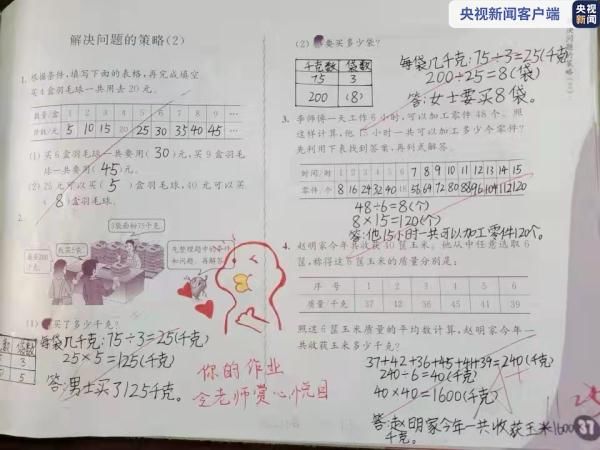 央视新闻客户端
央视新闻
解决问题的策略(2)
1. 根据条件,填写下面的表格,再完成填空。
买4盒羽毛球一共用去20元。
数量/盒 1 2 3 4 5 6 7 8 9 …
价钱/元 5 10 15 20 25 30 35 40 45 …
(1)买6盒羽毛球一共要用(30)元,买9盒羽毛
球一共要用(45)元。
(2)25元可以买(5)盒羽毛球,40元可以买
(8)盒羽毛球。
2.
3袋面粉75千克。
我买5袋。
我买200千克。
先整理题中的条件
和问题,再解答。
(1)买了多少千克?
每袋几千克:75÷3=25(千克)
25×5=125(千克)
答:男士买了125千克。
袋数
3
5
你的作业
令老师赏心悦目
(2)要买多少袋?
千克数 袋数
75 3
200 (8)
每袋几千克:75÷3=25(千克)
200÷25=8(袋)
答:女士要买8袋。
3. 李师傅一天工作6小时,可以加工零件48个。照
这样计算,他15小时一共可以加工多少个零件?
先利用下表找到答案,再列式解答。
时间/时 1 2 3 4 5 6 7 8 9 10 11 12 13 14 15
零件/个 8 16 24 32 40 48 56 64 72 80 88 96 104 112 120
48÷6=8(个)
8×15=120(个)
答:他15小时一共可以加工零件120个。
4. 赵明家今年共收获40筐玉米。他从中任意选取6
筐,称得这6筐玉米的质量分别是:
序号 1 2 3 4 5 6
质量/千克 37 42 36 45 41 39
照这6筐玉米质量的平均数计算,赵明家今年一
共收获玉米多少千克?
37+42+36+45+41+39=240(千克)
240÷6=40(千克)
40×40=1600(千克)
A+
答:赵明家今年一共收获玉米1600
千克。
37